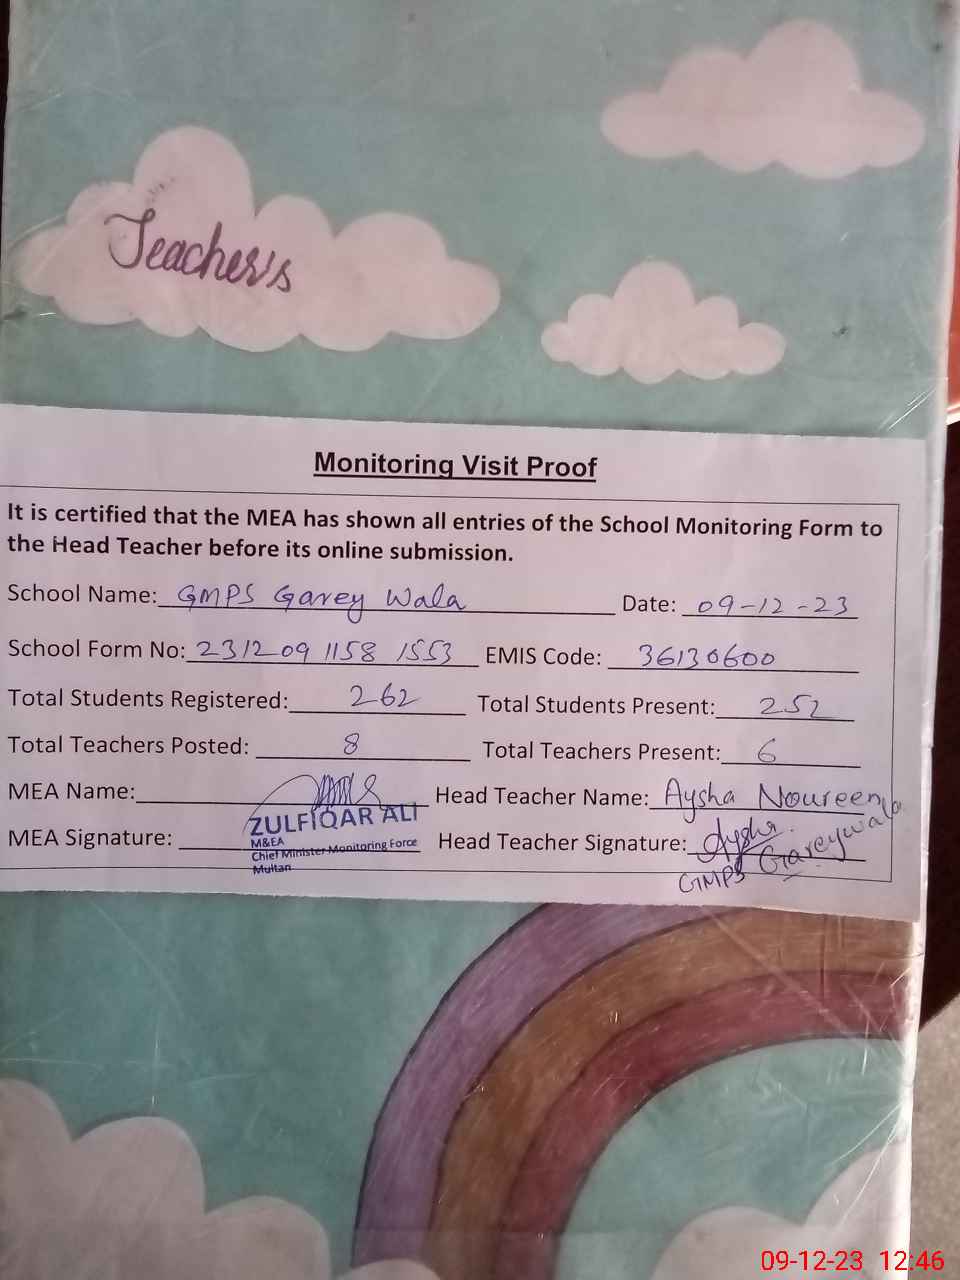 Teacher's
Monitoring Visit Proof
It is certified that the MEA has shown all entries of the School Monitoring Form to
the Head Teacher before its online submission.
School Name: GMPS Garey Wala Date: 09-12-23
School Form No: 231209 1158 1553 EMIS Code: 36130600
Total Students Registered: 262 Total Students Present: 252
Total Teachers Posted: 8 Total Teachers Present: 6
MEA Name: Head Teacher Name: Aysha Noureen
MEA Signature: Head Teacher Signature: Aysha
ZULFIQAR ALI
M&EA
Chief Minister Monitoring Force
Multan
GMPS Gareywala
09-12-23 12:46